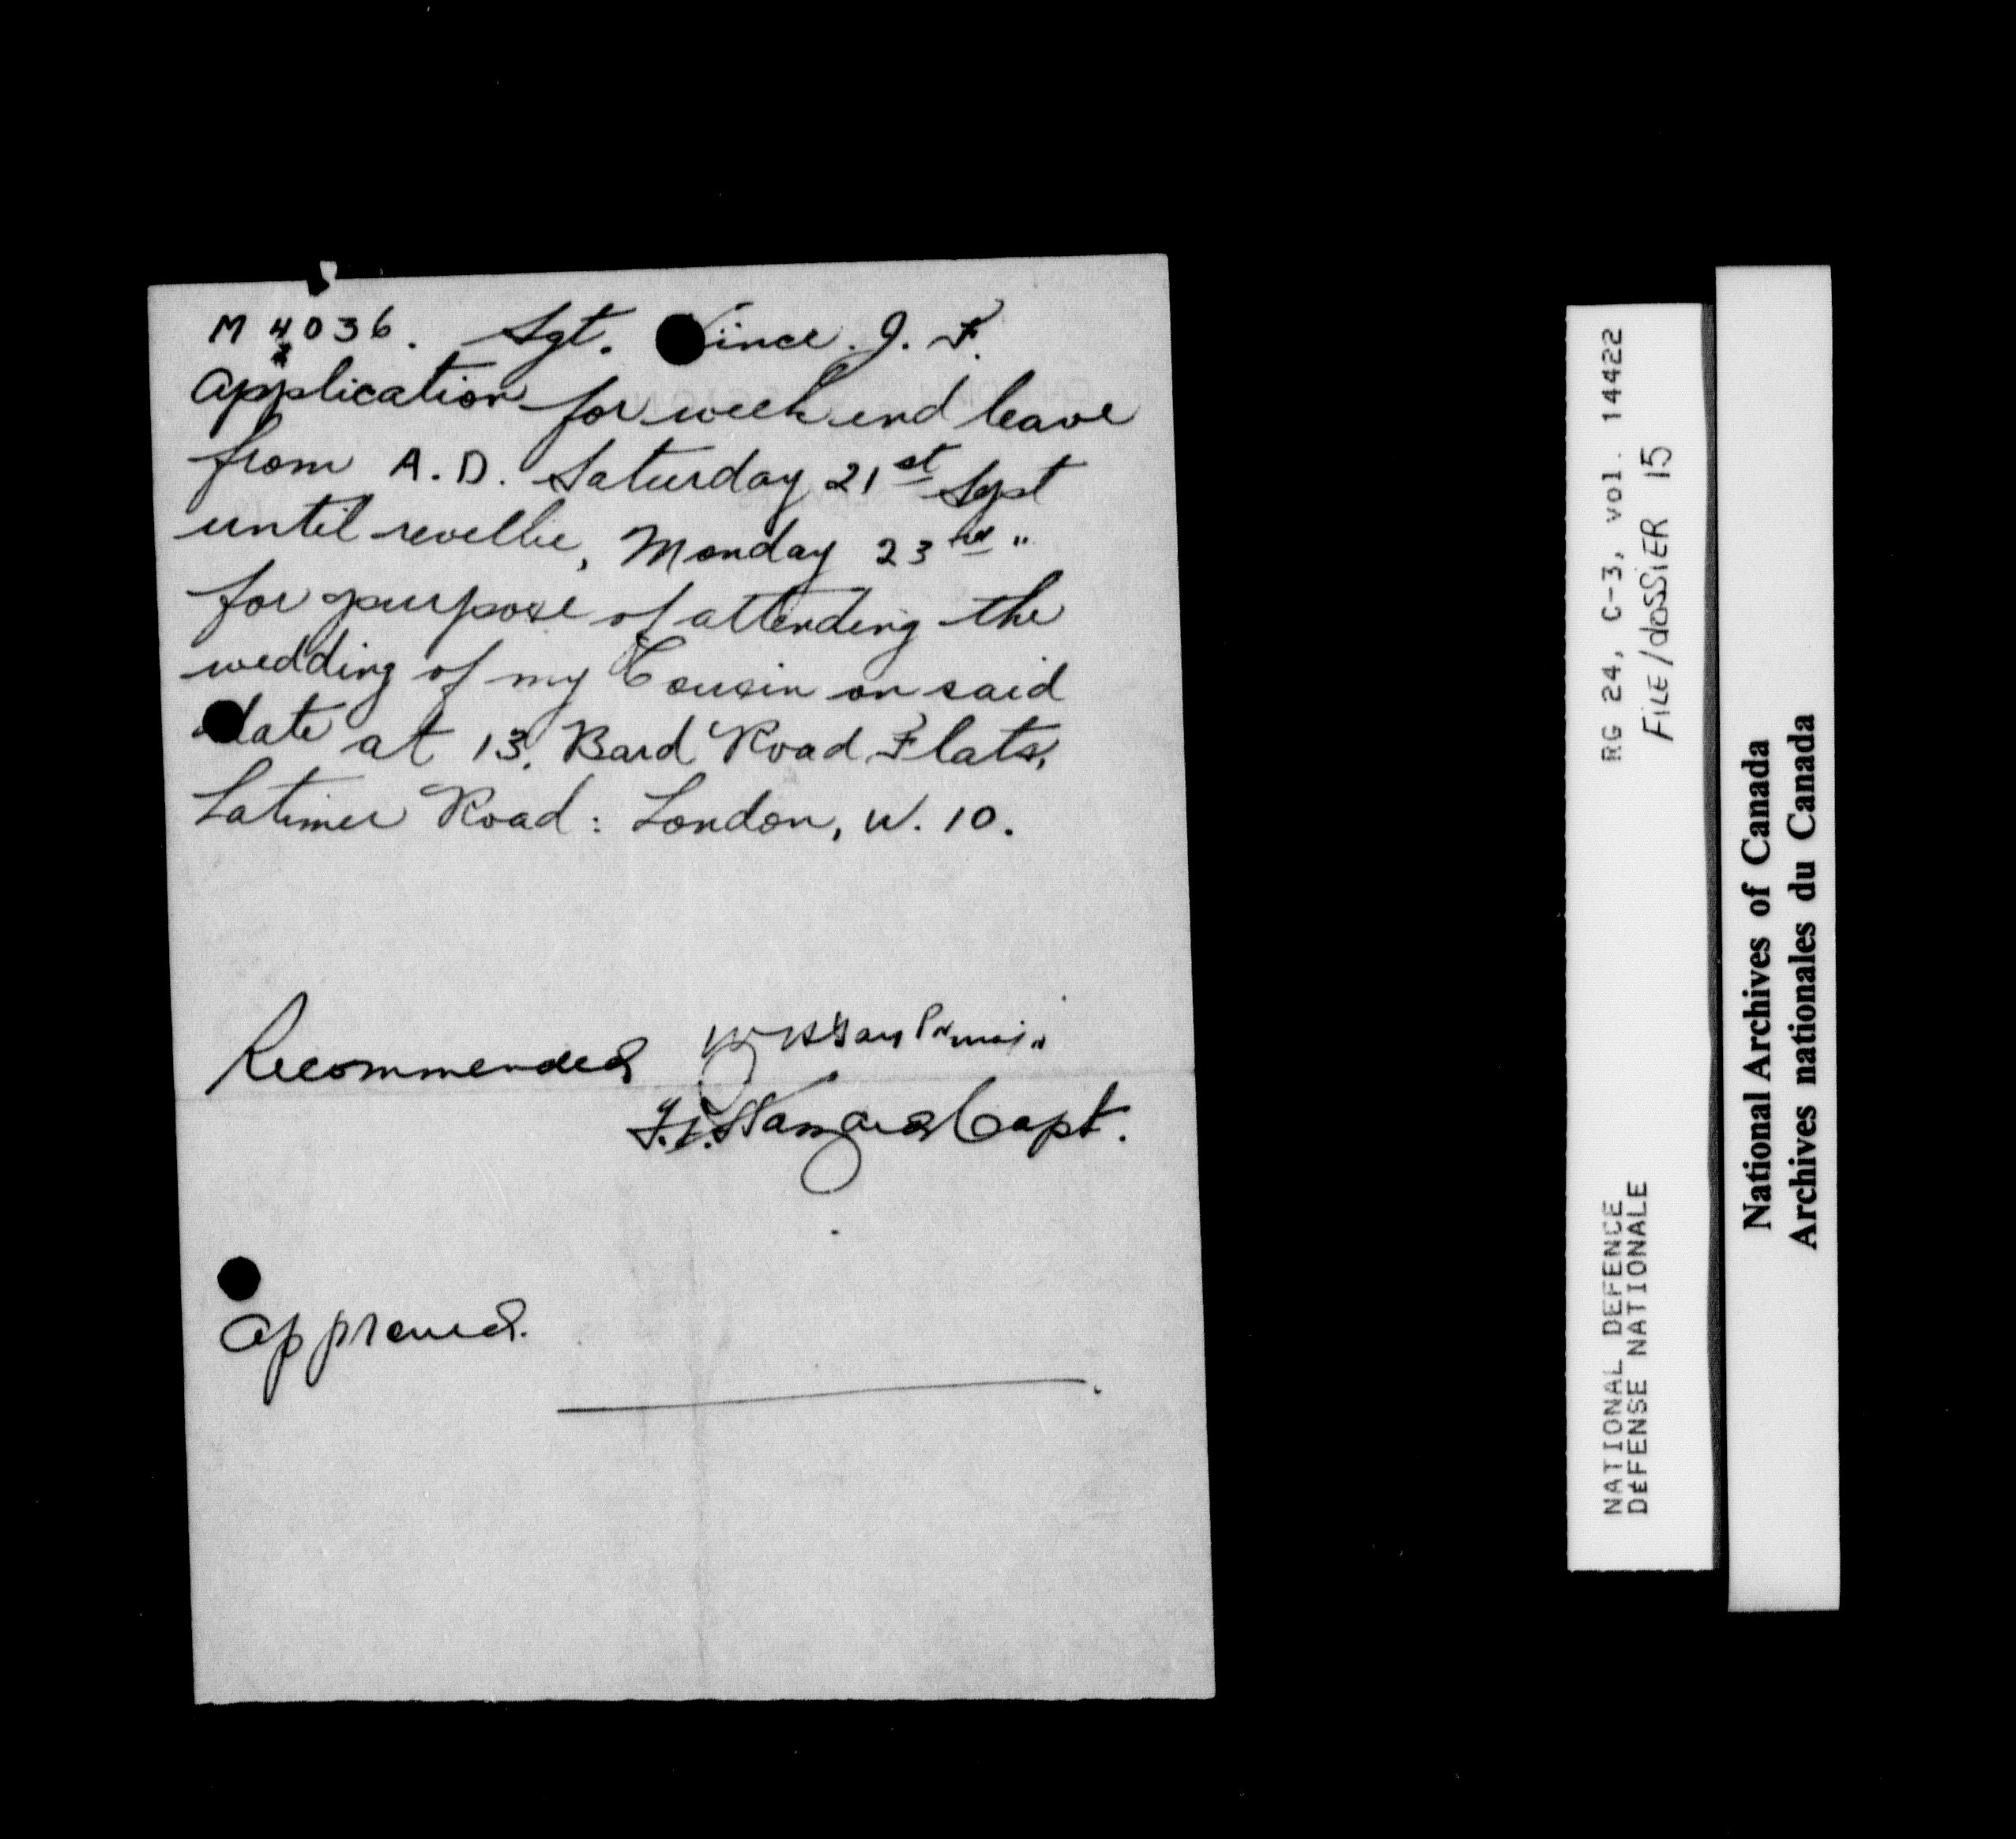 M 4036. Sgt. Vince. J. F.
Application for week end leave
from A.D. Saturday 21st Sept
until revellie, Monday 23rd "
for purpose of attending the
wedding of my Cousin on said
date at 13, Bard Road Flats,
Latimer Road: London, W. 10.
Recommended
Capt.
Approved.
RG 24, C-3, vol. 14422
FiLE/doSSiER 15
NATIONAL DEFENCE
DÉFENSE NATIONALE
National Archives of Canada
Archives nationales du Canada